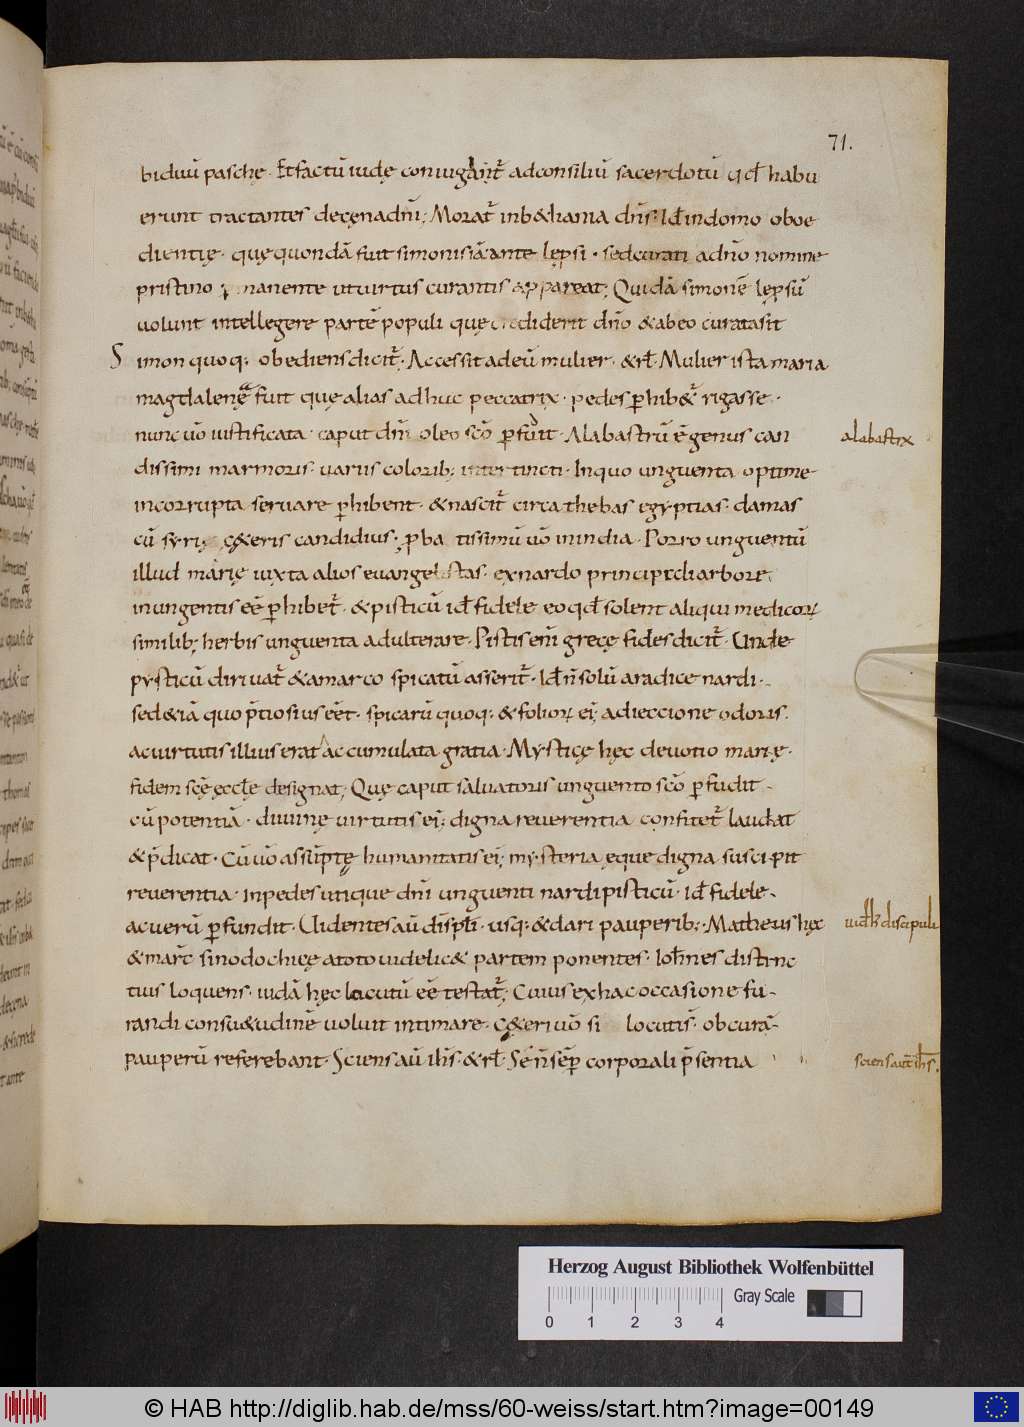 71.
biduũ paschę. Et factũ iudę coniugãnt̃ ad consiliũ sacerdotũ qđ habu
erunt tractantes de cęna dñi; Morat̃ in b&hania dñs. Iđ in domo oboe
dientię. quę quondã fuit simonis iã ante lępsi. sed curati a dño nomine
pristino manente ut uirtus curantis appareat; Quidã simonẽ lępsũ
uolunt intellegere partẽ populi quę crediderit dño & ab eo curata sit
Simon quoq; obediens dicit̃. Accessit ad eũ mulier. & rł. Mulier ista maria
magdalenę fuit quę alias adhuc peccatrix. pedes phib&̃ rigasse.
nunc ũo iustificata. caput dñi oleo sc̃o pfudit. Alabastrũ ẽ genus can
alabastrx
dissimi marmoris. uariis colorib; intertincti. In quo unguenta optime
incorrupta seruare phibent. & nascit̃ circa thebas egyptias. damas
cũ syrię c&eris candidius. pba tissimũ ũo in india. Porro unguentũ
illud marię iuxta alios euangelistas. ex nardo principe di arbore
in ungentis eẽ phibet̃. & pisticũ iđ fidele eo qđ solent aliqui medicoꝝ
similib; herbis unguenta adulterare. Pistis enĩ grece fides dicit̃. Unde
pysticũ diriuat̃ & a marco spicatũ asserit̃. Iđ ñ solũ a radice nardi.
sed & iã quo p̃tiosius eẽt. spicarũ quoq; & folioꝝ ei; adieccione odoris.
ac uirtutis illius erat accumulata gratia. Mysticę hęc deuotio marię.
fidem sc̃ę eccłę designat; Quę caput saluatoris unguento sc̃o pfudit
cũ potentiã. diuinę uirtutis ei; digna reuerentia confitet̃ laudat
& p̃dicat. Cũ ũo assũptę humanitatis ei; mysteria ęque digna suscipit
reuerentia. in pedes utique dñi unguenti nardi pisticũ. iđ fidele
ac uerũ pfundit. Uidentes aũ discipłi. usq; & dari pauperib;. Matheus hęc
uidẽt discipuli
& març sinodochięę a toto uidelic& partem ponentes. Ioħnes distinc
tius loquens. iudã hęc locutũ eẽ testat̃; Cuius ex hac occasione fu
randi consu&udinẽ uoluit intimare. C&eri ũo si locuti s̃. ob curã
pauperũ referebant. Sciens aũ iħs. & rł. Se ñ sẽp corporali p̃sentia
sciens aut̃ iħs.
Herzog August Bibliothek Wolfenbüttel
Gray Scale
0 1 2 3 4
© HAB http://diglib.hab.de/mss/60-weiss/start.htm?image=00149